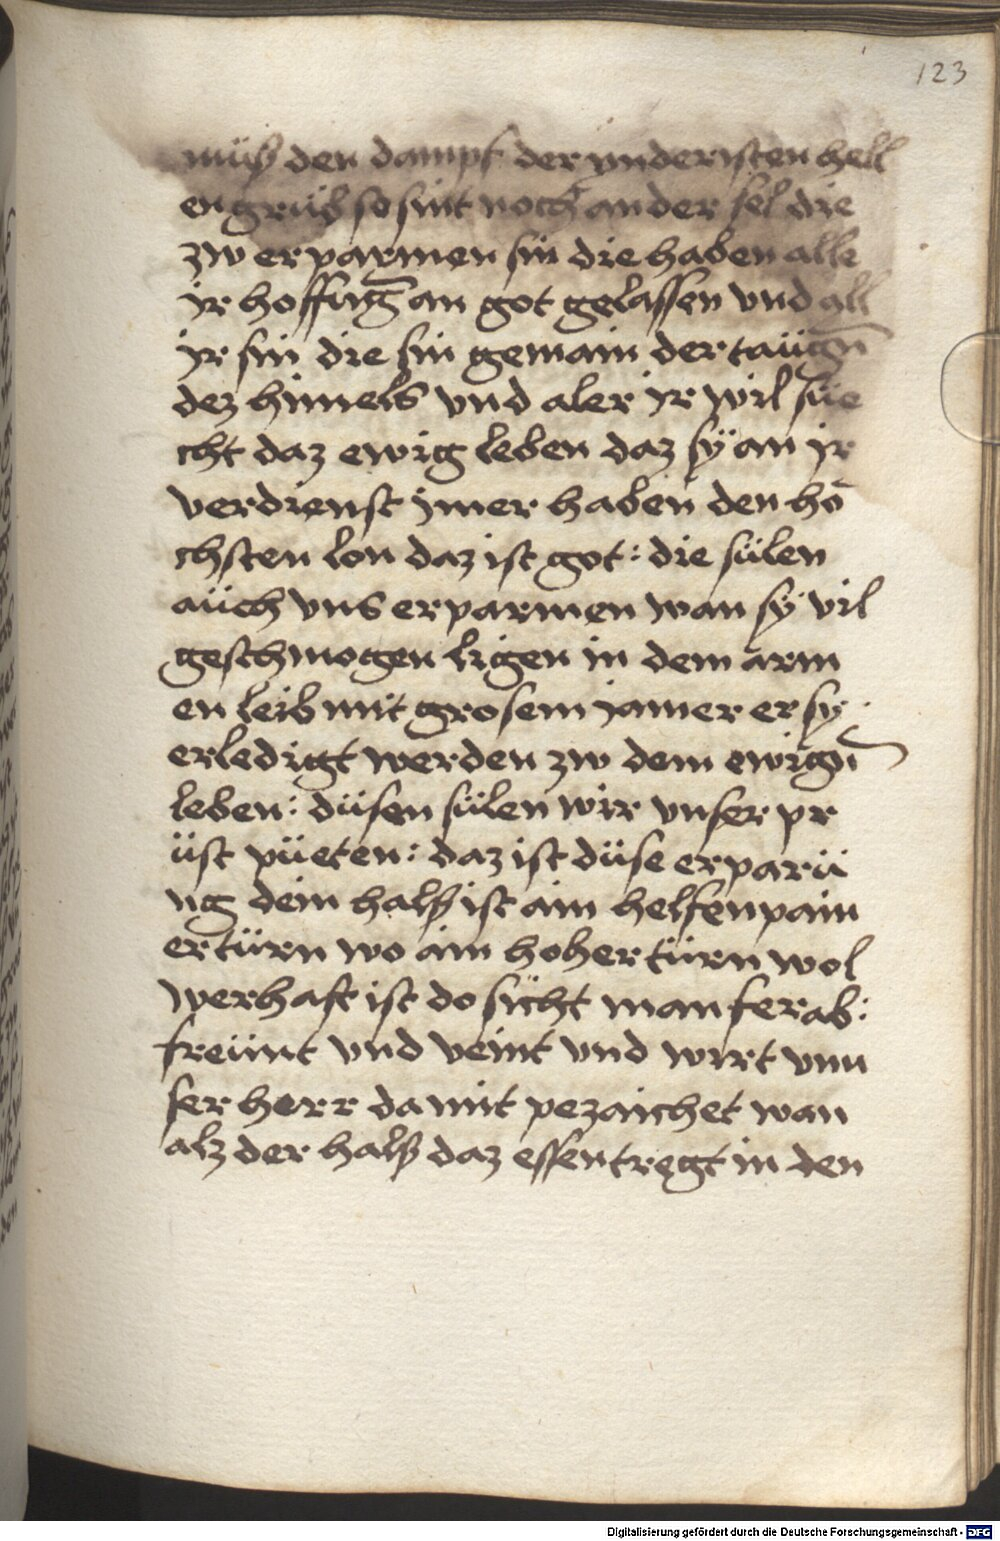 123
müsß den dampf der vnderisten hell
en grüb so sint noch ander sel die
zw erparmen sin die haben alle
ir hoffūg an got gelassen vnd all
yr sin die sin gemain der taügn̄
dez himels vnd aler yr wil süe
cht daz ewig leben daz sÿ an ir
verdienst ymer haben den hö
chsten lon daz ist got: die sülen
aüch vns erparmen wan sÿ vil
geschmogen ligen in dem arm
en leib mit grosem iamer er sÿ
erledigt werden zw dem ewign̄
leben: düsen sülen wir vnser pr
üst püeten: daz ist düse erparü
ng dein halsß ist ain helfenpain
er türn wo ain hoher türn wol
werhaft ist do sicht man fer ab:
freünt vnd veint vnd wirt vnn
ser herr da mit pezaichet wan
alz der halsß daz essen tregt in den
Digitalisierung gefördert durch die Deutsche Forschungsgemeinschaft - DFG